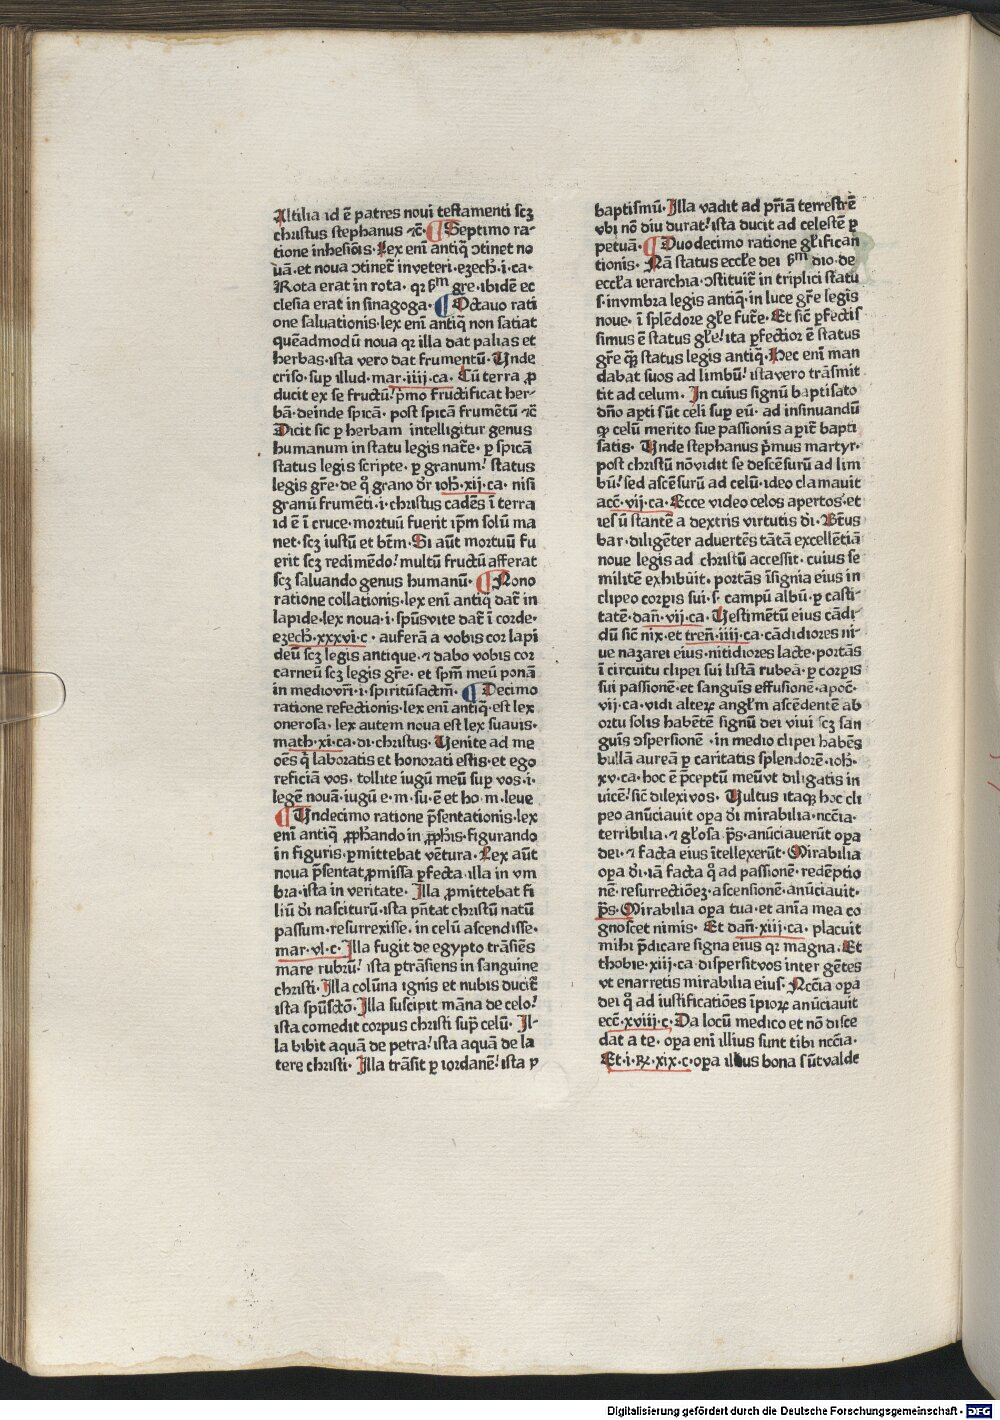 Altilia id ē patres noui testamenti scꝫ
christus stephanus ⁊c̄. ¶ Septimo ra-
tione inhesiōis. Lex eni antiq̄ ↄtinet no
uā. et noua ↄtinet̄ in veteri. ezech̄. i. ca.
Rota erat in rota. qꝛ ẜm gre. ibidē ec
clesia erat in sinagoga. ¶ Octauo rati
one saluationis. lex eni antiq̄ non satiat
quēadmodū noua qꝛ illa dat palias et
herbas. ista vero dat frumentū. Unde
criso. suꝑ illud. mar. iiij. ca. Cū terra ꝓ
ducit ex se fructū! p̄mo fructificat her-
bā. deinde spicā. post spicā frumētū ⁊c̄
Dicit sic ꝑ herbam intelligitur genus
humanum in statu legis nat̄e. ꝑ spicā
status legis scripte. ꝑ granum! status
legis gr̄e. de qͦ grano dr̄ ioh̄. xij. ca. nisi
granū frumēti. i. christus cadēs ī terra
id ē ī cruce. mortuū fuerit ip̄m solū ma
net. scꝫ iustū et bt̄m. Si aūt mortuū fu
erit scꝫ redimēdo! multū fructū afferat
scꝫ saluando genus humanū. ¶ Nono
ratione collationis. lex eni antiq̄ dat̄ in
lapide. lex noua. i. spūs vite dat̄ ī corde.
ezech̄. xxxvi. c. auferā a vobis cor lapi
deū scꝫ legis antique. ⁊ dabo vobis cor
carneū scꝫ legis gr̄e. et spm̄ meū ponā
in medio vr̄i. i. spiritū sactm̄. ¶ Decimo
ratione refectionis. lex eni antiq̄. est lex
onerosa. lex autem noua est lex suauis.
math. xi. ca. di. christus. Uenite ad me
oēs q̇ laboratis et honorati estis. et ego
reficiā vos. tollite iugū meū suꝑ vos. i.
legē nouā. iugū e. m. su. ē et ho. m. leue
¶ Undecimo ratione p̄sentationis. lex
eni antiq̄ ꝓph̄ando in ꝓph̄is. figurando
in figuris. ꝑmittebat vētura. Lex aūt
noua p̄sentat ꝓmissa ꝑfecta. illa in vm
bra. ista in veritate. Illa ꝓmittebat fi
liū di nasciturū. ista pn̄tat christū natū
passum. resurrexisse. in celū ascendisse.
mar. vl. c. Illa fugit de egypto trāsiēs
mare rubrū! ista ꝑtrāsiens in sanguine
christi. Illa colūna ignis et nubis ducit̄
ista spūsctō. Illa suscipit māna de celo!
ista comedit corpus christi supͣ celū. Il-
la bibit aquā de petra! ista aquā de la
tere christi. Illa trāsit ꝑ iordanē! ista ꝑ
baptismū. Illa vadit ad pr̄iā terrestrē
vbi nō diu durat! ista ducit ad celestē ꝑ
petuā. ¶ Duodecimo ratione gl̄ifican
tionis. Nā status eccl̄e dei ẜm dio. de
eccl̄a ierarchia. ↄstituit̄ in triplici statu
s. in vmbra legis antiq̄. in luce gr̄e legis
noue. ī splēdore gl̄e fut̄e. Et sic̄ ꝑfectis
simus ē status gl̄e! ita ꝑfectior ē status
gr̄e qꝫ status legis antiq̄. Hec eni man
dabat suos ad limbū! ista vero trāsmit
tit ad celum. In cuius signū baptisato
dn̄o aꝑti sūt celi suꝑ eū. ad insinuandū
ꝙ celū merito sue passionis aꝑit̄ bapti
satis. Unde stephanus p̄mus martyr.
post christū nō vidit se descēsurū ad lim
bū! sed ascēsurū ad celū. ideo clamauit
act̄. vij. ca. Ecce video celos apertos. et
iesū stantē a dextris virtutis di. Bt̄us
bar. diligēter aduertēs tātā excellētiā
noue legis ad christū accessit. cuius se
militē exhibuit. portās īsignia eius in
clipeo corꝑis sui. s. campū albū. ꝑ casti
tatē. dan̄. vij. ca. Uestimētū eius cādi
dū sic̄ nix. et tren̄. iiij. ca. cādidiores ni-
ue nazarei eius. nitidiores lacte. portās
ī circuitu clipei sui listā rubeā. ꝑ corꝑis
sui passionē. et sanguis effusionē. apoc̄.
vij. ca. vidi alteꝝ angl̄m ascēdentē ab
ortu solis habētē signū dei viui scꝫ san
guis ↄspersionē. in medio clipei habēs
bullā aureā ꝑ caritatis splendorē. ioh̄.
xv. ca. hoc ē p̄ceptū meū vt diligatis in
uicē! sic̄ dilexi vos. Uultus itaqꝫ hoc cli
peo anūciauit oꝑa di mirabilia. ncc̄ia.
terribilia. ⁊ glosa ps̄. anūciauerūt oꝑa
dei. ⁊ facta eius ītellexerūt. Mirabilia
oꝑa di. iā facta qͦ ad passionē. redēptio
nē. resurrectiōeꝫ. ascensionē. anūciauit.
ps̄. Mirabilia oꝑa tua. et anīa mea co
gnoscet nimis. Et dan̄. xiij. ca. placuit
mihi p̄dicare signa eius qꝛ magna. Et
thobie. xiij. ca dispersit vos inter gētes
vt enarretis mirabilia eius. Ncc̄ia oꝑa
dei qͦ ad iustificatiōes īpioꝝ anūciauit
ecc̄. xviij. c. Da locū medico et nō disce
dat a te. oꝑa eni illius sunt tibi ncc̄ia.
Et. i. ꝶ. xix. c. oꝑa illius bona sūt valde
Digitalisierung gefördert durch die Deutsche Forschungsgemeinschaft - DFG